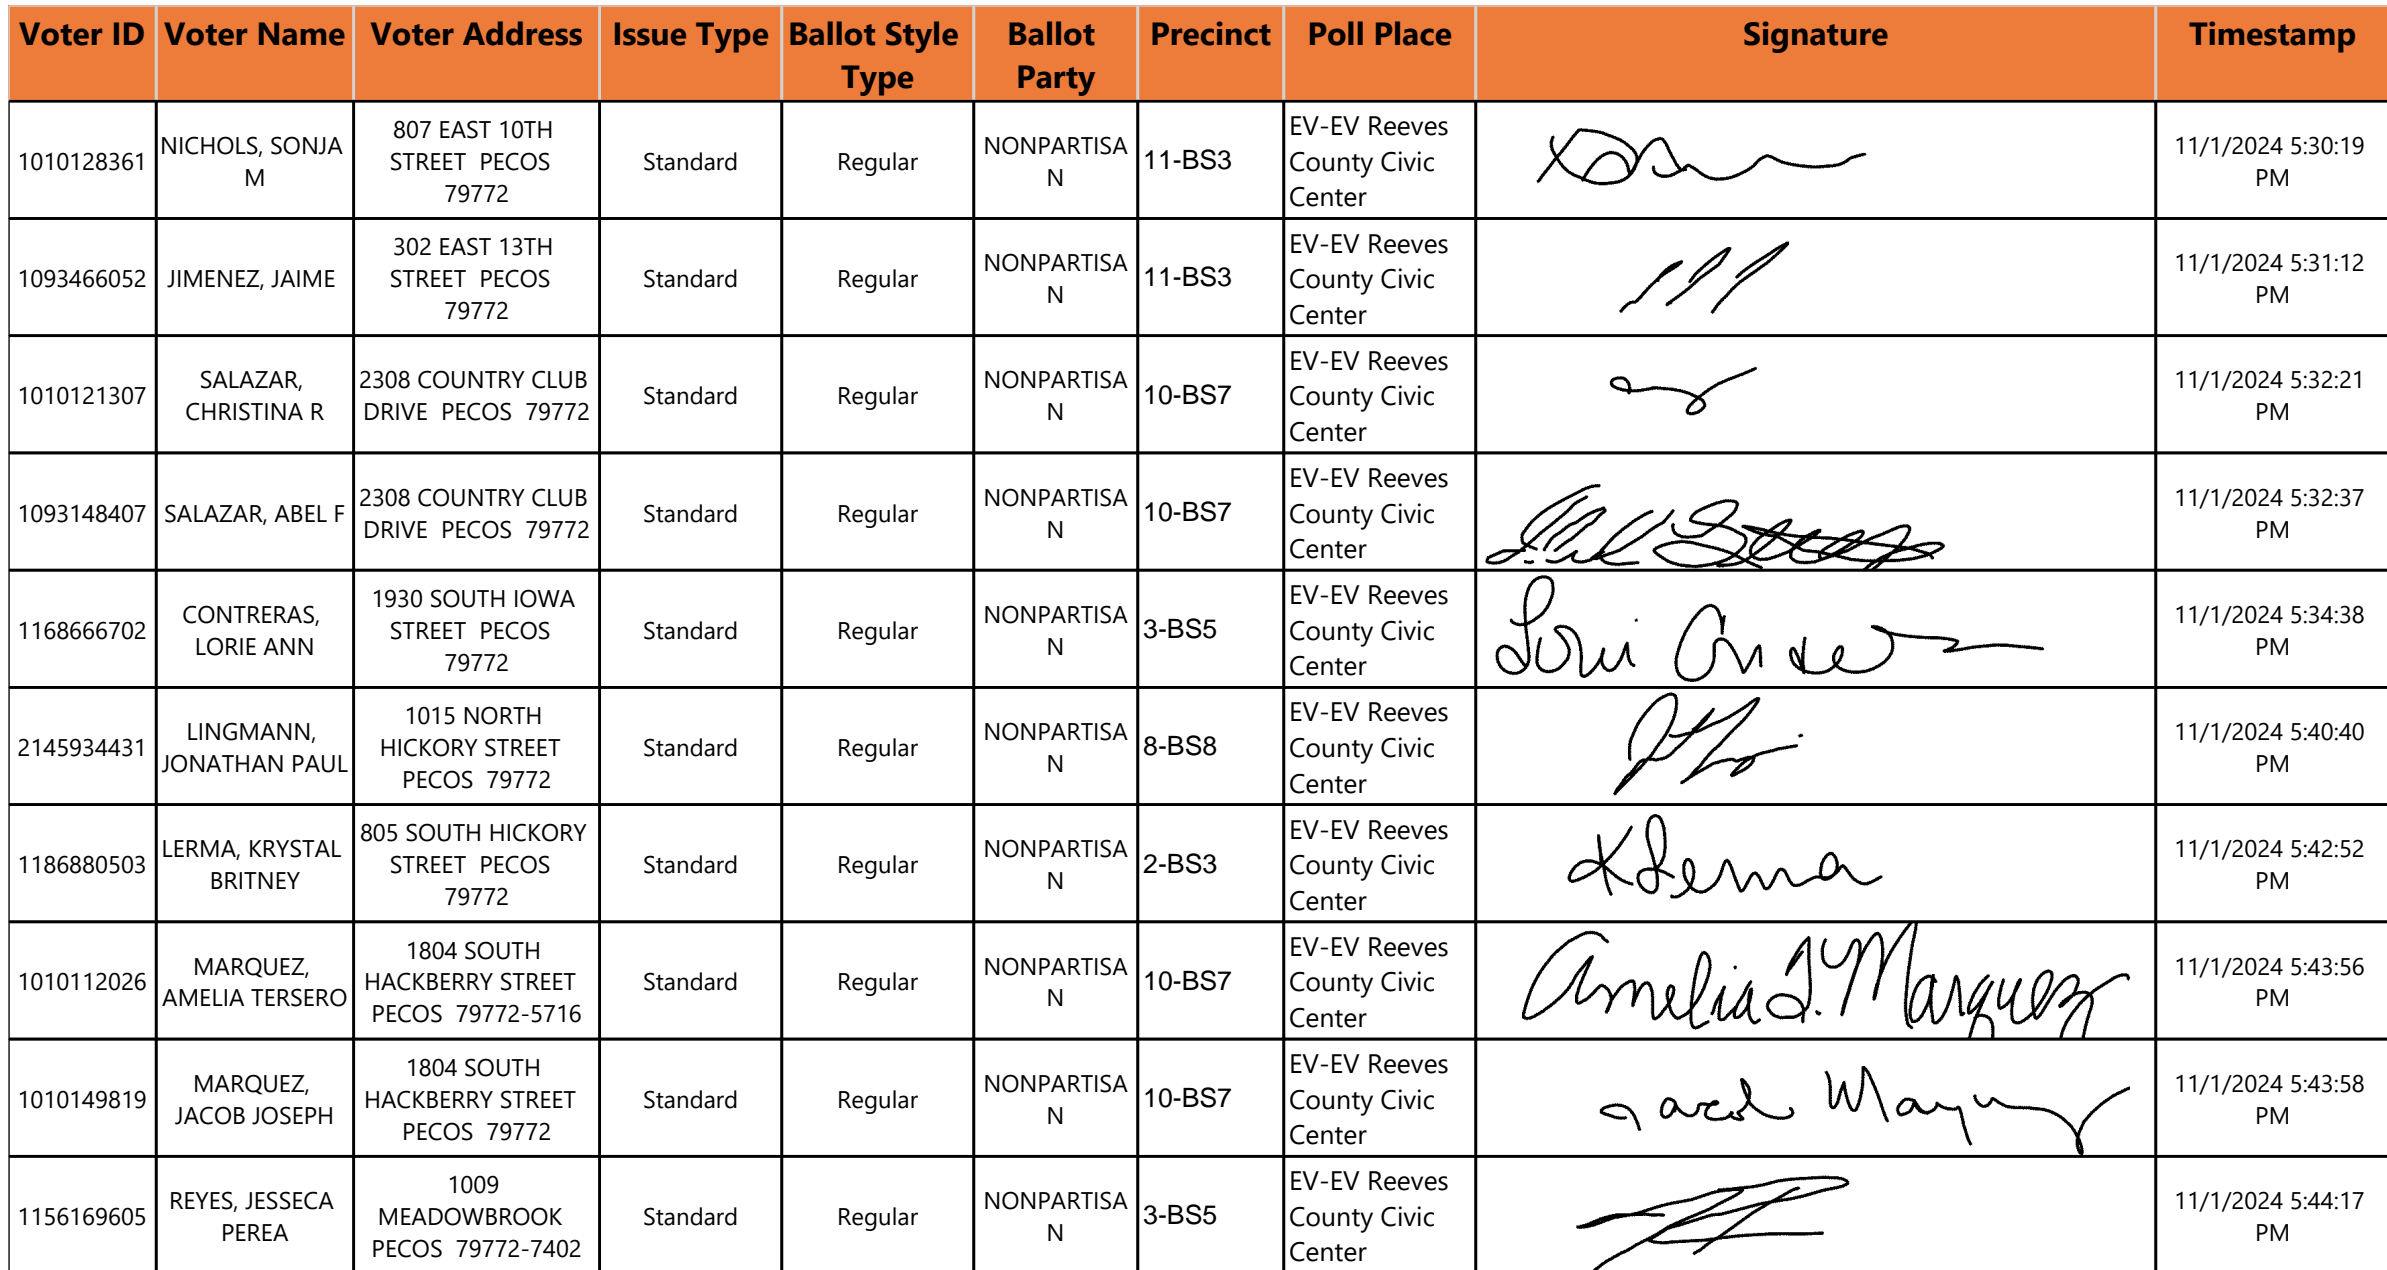 Voter ID Voter Name Voter Address Issue Type Ballot Style Type Ballot Party Precinct Poll Place Signature Timestamp
1010128361 NICHOLS, SONJA M 807 EAST 10TH STREET PECOS 79772 Standard Regular NONPARTISAN 11-BS3 EV-EV Reeves County Civic Center 11/1/2024 5:30:19 PM
1093466052 JIMENEZ, JAIME 302 EAST 13TH STREET PECOS 79772 Standard Regular NONPARTISAN 11-BS3 EV-EV Reeves County Civic Center 11/1/2024 5:31:12 PM
1010121307 SALAZAR, CHRISTINA R 2308 COUNTRY CLUB DRIVE PECOS 79772 Standard Regular NONPARTISAN 10-BS7 EV-EV Reeves County Civic Center 11/1/2024 5:32:21 PM
1093148407 SALAZAR, ABEL F 2308 COUNTRY CLUB DRIVE PECOS 79772 Standard Regular NONPARTISAN 10-BS7 EV-EV Reeves County Civic Center 11/1/2024 5:32:37 PM
1168666702 CONTRERAS, LORIE ANN 1930 SOUTH IOWA STREET PECOS 79772 Standard Regular NONPARTISAN 3-BS5 EV-EV Reeves County Civic Center 11/1/2024 5:34:38 PM
2145934431 LINGMANN, JONATHAN PAUL 1015 NORTH HICKORY STREET PECOS 79772 Standard Regular NONPARTISAN 8-BS8 EV-EV Reeves County Civic Center 11/1/2024 5:40:40 PM
1186880503 LERMA, KRYSTAL BRITNEY 805 SOUTH HICKORY STREET PECOS 79772 Standard Regular NONPARTISAN 2-BS3 EV-EV Reeves County Civic Center K Lerma 11/1/2024 5:42:52 PM
1010112026 MARQUEZ, AMELIA TERSERO 1804 SOUTH HACKBERRY STREET PECOS 79772-5716 Standard Regular NONPARTISAN 10-BS7 EV-EV Reeves County Civic Center Amelia T. Marquez 11/1/2024 5:43:56 PM
1010149819 MARQUEZ, JACOB JOSEPH 1804 SOUTH HACKBERRY STREET PECOS 79772 Standard Regular NONPARTISAN 10-BS7 EV-EV Reeves County Civic Center Jacob Marquez 11/1/2024 5:43:58 PM
1156169605 REYES, JESSECA PEREA 1009 MEADOWBROOK PECOS 79772-7402 Standard Regular NONPARTISAN 3-BS5 EV-EV Reeves County Civic Center 11/1/2024 5:44:17 PM